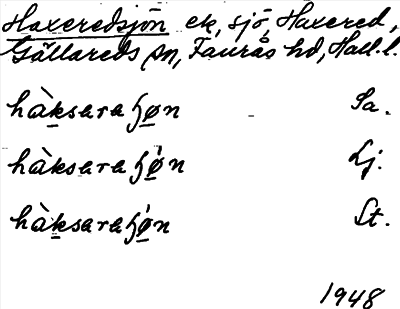 Haxeredsjön ek, sjö, Haxered,
Gällareds sn, Faurås hd, Hall. l.
hàksaraɧøn Sa.
hàksaraɧǿn Lj.
hàksaraɧǿn St.
1948